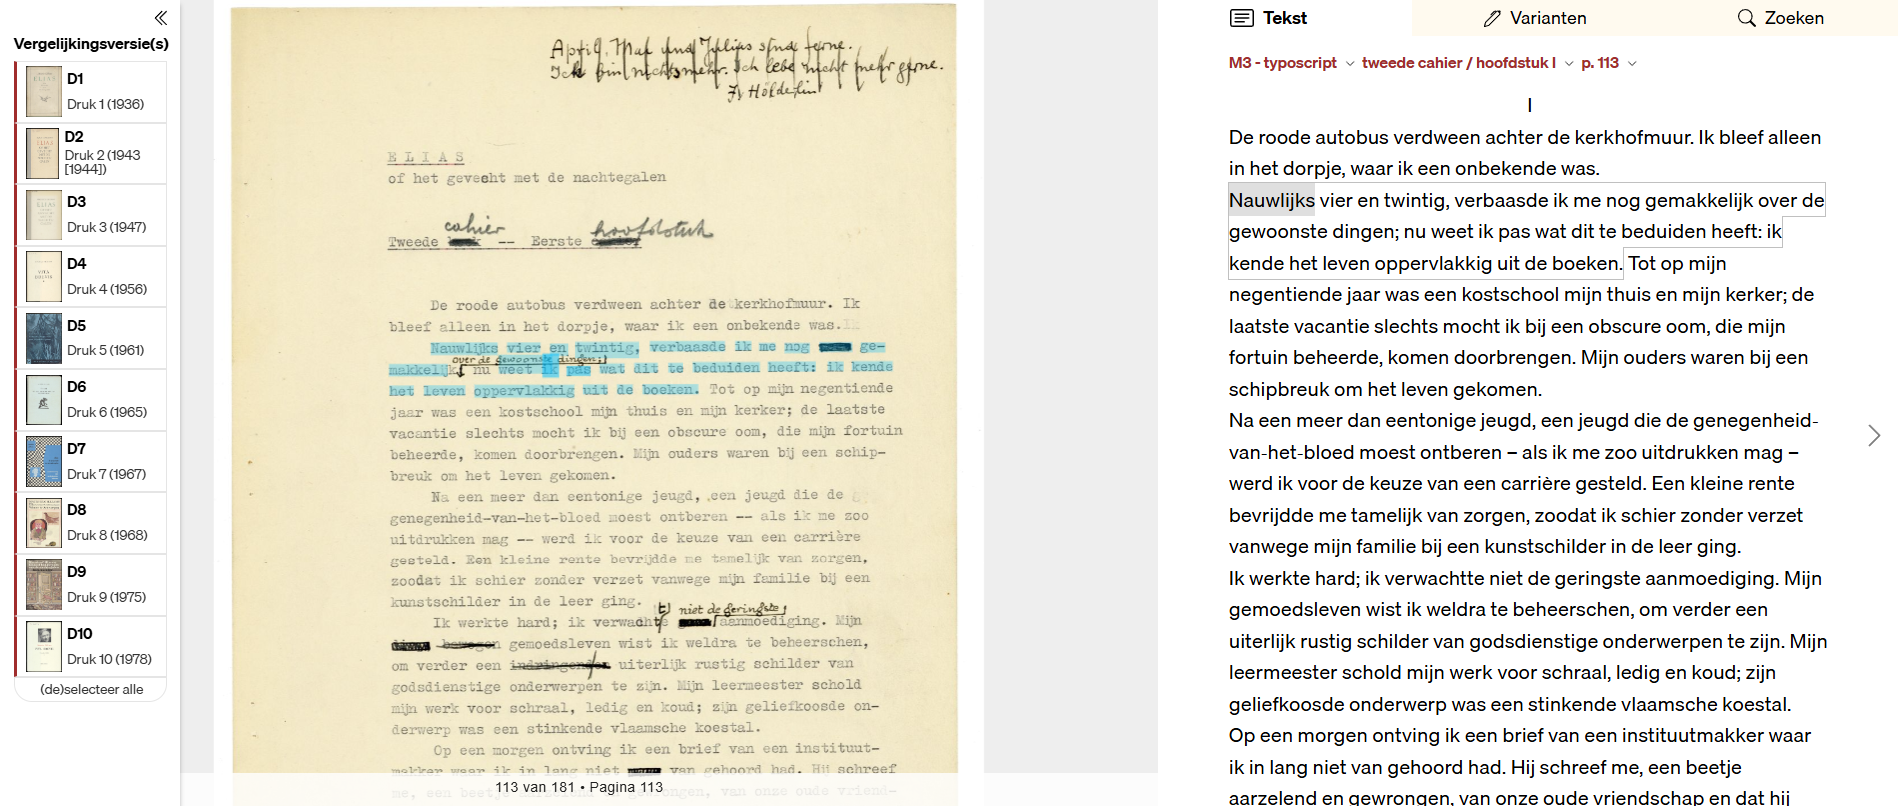 Vergelijkingsversie(s)
D1
Druk 1 (1936)
D2
Druk 2 (1943
[1944])
D3
Druk 3 (1947)
D4
Druk 4 (1956)
D5
Druk 5 (1961)
D6
Druk 6 (1965)
D7
Druk 7 (1967)
D8
Druk 8 (1968)
D9
Druk 9 (1975)
D10
Druk 10 (1978)
(de)selecteer alle
April, Mai und Julius sind ferne.
Ich bin nichts mehr. Ich lebe nicht mehr gerne.
Hölderlin
ELIAS
of het gevecht met de nachtegalen
cahier hoofdstuk
Tweede -- Eerste
De roode autobus verdween achter de kerkhofmuur. Ik
bleef alleen in het dorpje, waar ik een onbekende was.
Nauwlijks vier en twintig, verbaasde ik me nog ge-
over de gewoonste dingen;
makkelijk nu weet ik pas wat dit te beduiden heeft: ik kende
het leven oppervlakkig uit de boeken. Tot op mijn negentiende
jaar was een kostschool mijn thuis en mijn kerker; de laatste
vacantie slechts mocht ik bij een obscure oom, die mijn fortuin
beheerde, komen doorbrengen. Mijn ouders waren bij een schip-
breuk om het leven gekomen.
Na een meer dan eentonige jeugd, een jeugd die de
genegenheid-van-het-bloed moest ontberen -- als ik me zoo
uitdrukken mag -- werd ik voor de keuze van een carrière
gesteld. Een kleine rente bevrijdde me tamelijk van zorgen,
zoodat ik schier zonder verzet vanwege mijn familie bij een
kunstschilder in de leer ging.
niet de geringste
Ik werkte hard; ik verwachtte aanmoediging. Mijn
bewogen gemoedsleven wist ik weldra te beheerschen,
om verder een indringender uiterlijk rustig schilder van
godsdienstige onderwerpen te zijn. Mijn leermeester schold
mijn werk voor schraal, ledig en koud; zijn geliefkoosde on-
derwerp was een stinkende vlaamsche koestal.
Op een morgen ontving ik een brief van een instituut-
makker waar ik in lang niet van gehoord had. Hij schreef
113 van 181 • Pagina 113
Tekst
Varianten
Zoeken
M3 - typoscript tweede cahier / hoofdstuk I p. 113
I
De roode autobus verdween achter de kerkhofmuur. Ik bleef alleen
in het dorpje, waar ik een onbekende was.
Nauwlijks vier en twintig, verbaasde ik me nog gemakkelijk over de
gewoonste dingen; nu weet ik pas wat dit te beduiden heeft: ik
kende het leven oppervlakkig uit de boeken. Tot op mijn
negentiende jaar was een kostschool mijn thuis en mijn kerker; de
laatste vacantie slechts mocht ik bij een obscure oom, die mijn
fortuin beheerde, komen doorbrengen. Mijn ouders waren bij een
schipbreuk om het leven gekomen.
Na een meer dan eentonige jeugd, een jeugd die de genegenheid-
van-het-bloed moest ontberen – als ik me zoo uitdrukken mag –
werd ik voor de keuze van een carrière gesteld. Een kleine rente
bevrijdde me tamelijk van zorgen, zoodat ik schier zonder verzet
vanwege mijn familie bij een kunstschilder in de leer ging.
Ik werkte hard; ik verwachtte niet de geringste aanmoediging. Mijn
gemoedsleven wist ik weldra te beheerschen, om verder een
uiterlijk rustig schilder van godsdienstige onderwerpen te zijn. Mijn
leermeester schold mijn werk voor schraal, ledig en koud; zijn
geliefkoosde onderwerp was een stinkende vlaamsche koestal.
Op een morgen ontving ik een brief van een instituutmakker waar
ik in lang niet van gehoord had. Hij schreef me, een beetje
aarzelend en gewrongen, van onze oude vriendschap en dat hij